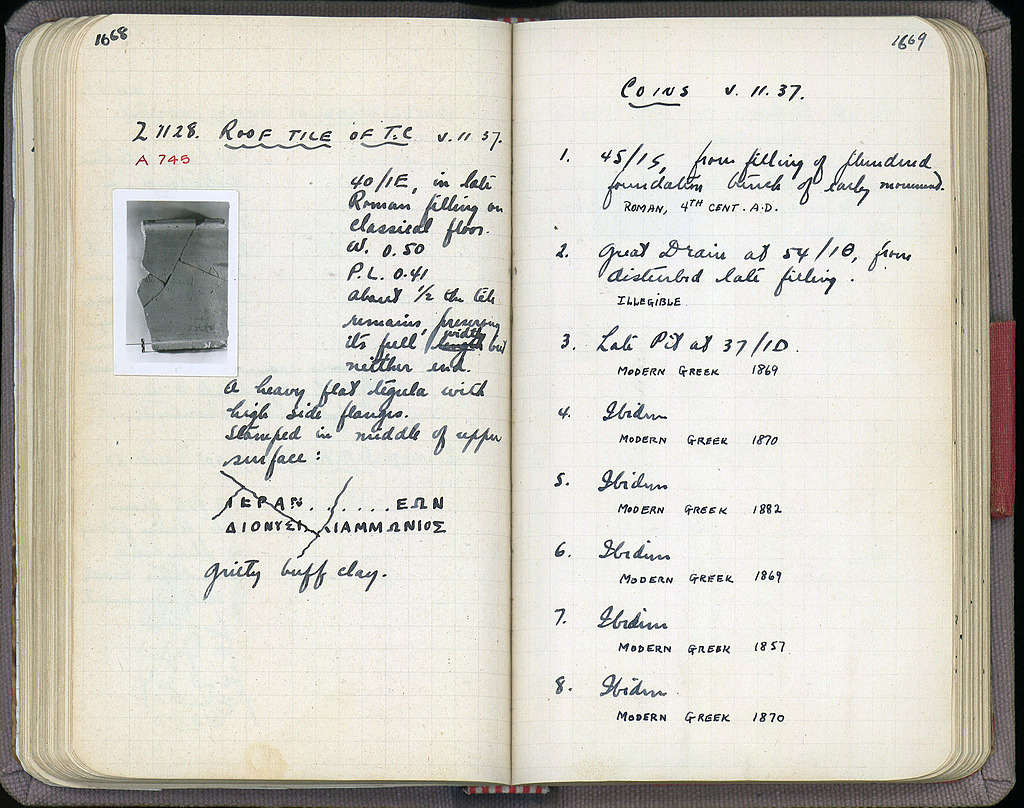 1668
Σ 1128. ROOF TILE OF T.C. V. 11. 37.
A 745
40/ΙΕ, in late
Roman filling on
classical floor.
W. 0.50
P.L. 0.41
about 1/2 the tile
remains, preserving
its full length width but
neither end.
A heavy flat tegula with
high side flanges.
Stamped in middle of upper
surface:
ΙΕΡΑΝ . . . . . . ΕΩΝ
ΔΙΟΝΥΣΙ ΙΑΜΜΩΝΙΟΣ
gritty buff clay.
1669
COINS V. 11. 37.
1. 45/ΙΕ, from filling of plundered
foundation trench of early monument.
ROMAN, 4TH CENT. A.D.
2. Great Drain at 54/ΙΘ, from
disturbed late filling.
ILLEGIBLE
3. Late Pit at 37/ΙΔ.
MODERN GREEK 1869
4. Ibidem
MODERN GREEK 1870
5. Ibidem
MODERN GREEK 1882
6. Ibidem
MODERN GREEK 1869
7. Ibidem
MODERN GREEK 1857
8. Ibidem
MODERN GREEK 1870